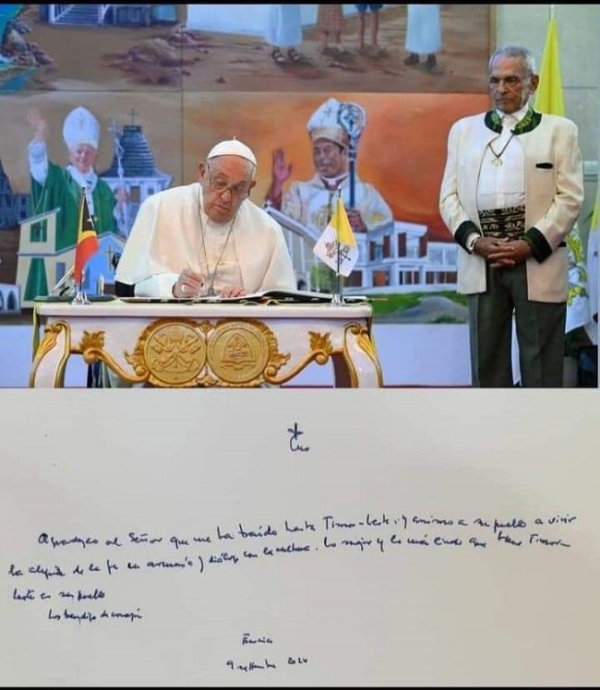 Agradezco al Señor que me ha traído hasta Timor-Leste. Y animo a su pueblo a vivir
la alegría de la fe en armonía y diálogo con la cultura. Lo mejor y lo más lindo que tiene Timor-
Leste es su pueblo
Los bendigo de corazón
Francisco
9 settembre 2024